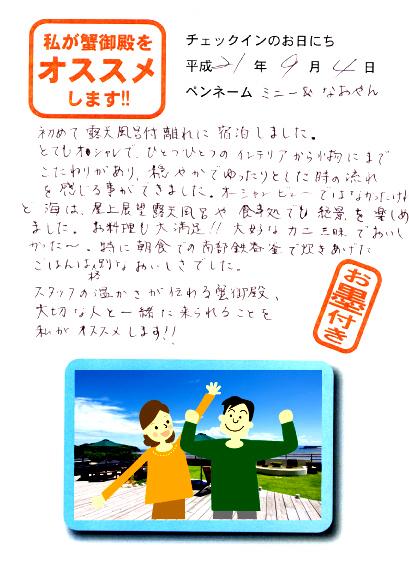 私が蟹御殿を
オススメ
します!!
チェックインのお日にち
平成 21 年 9 月 4 日
ペンネーム ミニー& なおやん
初めて露天風呂付離れに宿泊しました。
とてもオシャレで、ひとつひとつのインテリアから小物にまで
こだわりがあり、穏やかでゆったりとした時の流れ
を感じる事ができました。オーシャンビューではなかったけれ
ど海は、屋上展望露天風呂や食事処でも絶景を楽しめ
ました。お料理も大満足!!大好なカニ三昧でおいし
かった〜。特に朝食での南部鉄器釜で炊きあげた
ごはんは格別なおいしさでした。
スタッフの温かさが伝わる蟹御殿、
大切な人と一緒に来られることを
私がオススメします!!
お墨付き